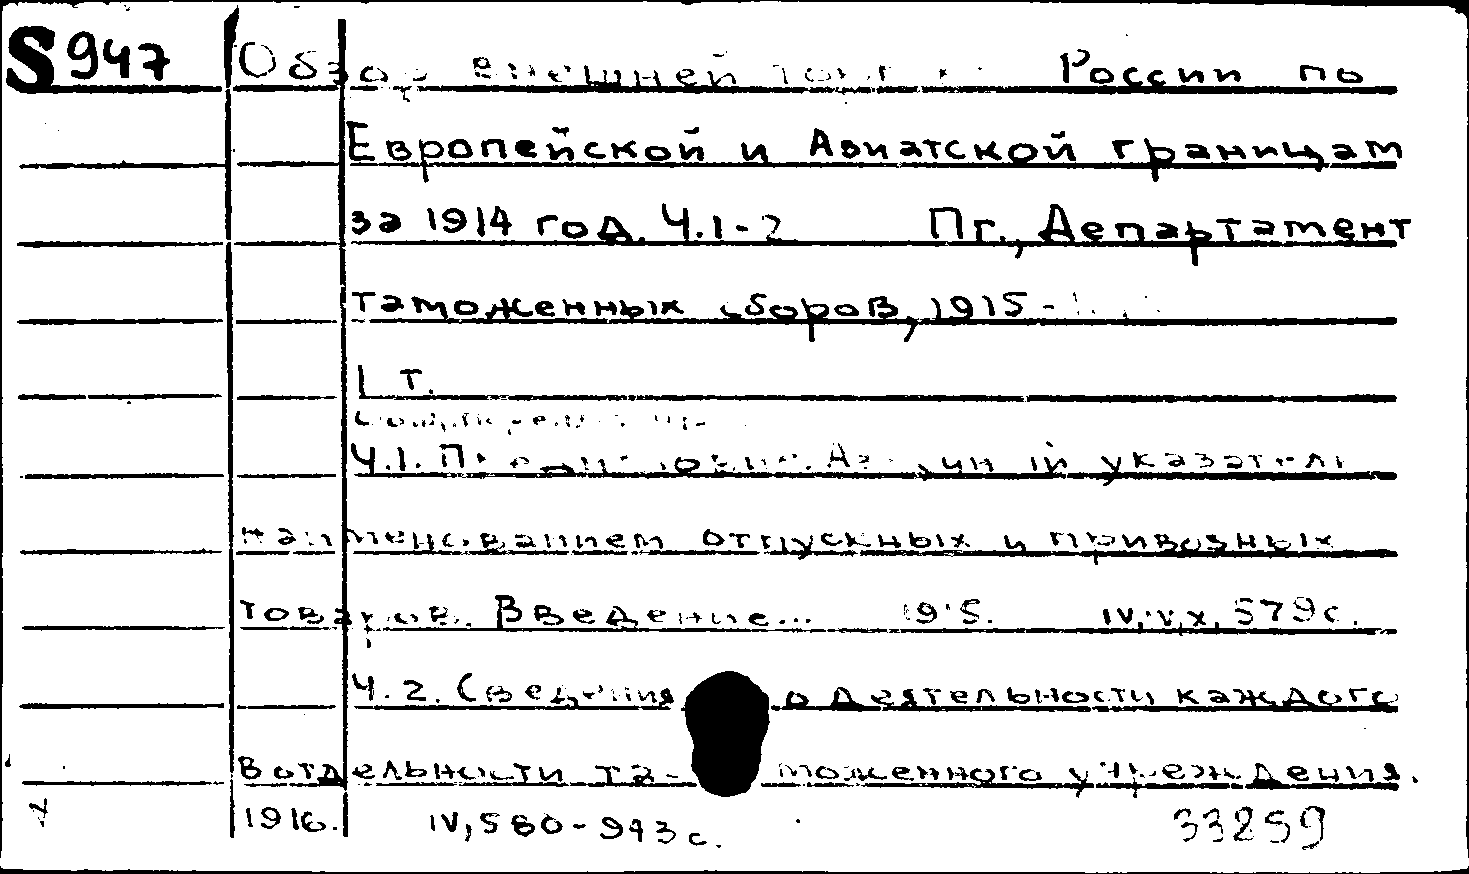 S947 Обзор внешней торг России по
Европейской и Азиатской границам
за 1914 год. Ч.1-2 Пг., Департамент
таможенных сборов, 1915-
1 т.
Ч.1. указатель
наименованием отпускных и привозных
товаров. Введение... 1915. IV,V,X, 579с.
Ч.2. Сведения о деятельности каждого
в отдельности та- моженного учреждения.
1916. IV, 580-943с. 33259